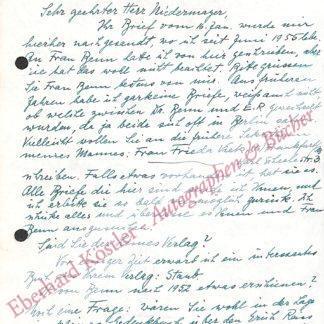 Sehr geehrter Herr Niedermayer,
Ihr Brief vom 6. Jan. wurde mir
hierher nachgesandt, wo ich seit Juni 1956 lebe.
An Frau Benn hatte ich von hier geschrieben, aber
sie hat das wohl nicht Bitte grüssen
Sie Frau Benn bestens von mir. Aus früheren
Jahren habe ich gar keine Briefe, weiss auch nicht
ob welche zwischen Dr. Benn und E.R. gewechselt
wurden, da ja beide sich oft in Berlin
Vielleicht wollen Sie an die frühere
meines Mannes: Frau Frieda
schreiben. Falls etwas vorhanden ist, hat sie es.
Alle Briefe die hier sind schicke ich Ihnen, und
ich erbitte sie so bald als möglich zurück. Ich
schicke alles und überlasse es Ihnen und Frau
Benn auszusuchen.
Sind Sie der Limes Verlag?
Vor einiger Zeit erwarb ich ein interessantes
Buch aus Ihrem Verlag: Staub
von Benn seit 1952 etwas erschienen?
Und eine Frage: wären Sie wohl in der Lage
ein Gedenkbuch über den Erich Reiss
Eberhard Köstler Autographen & Bücher